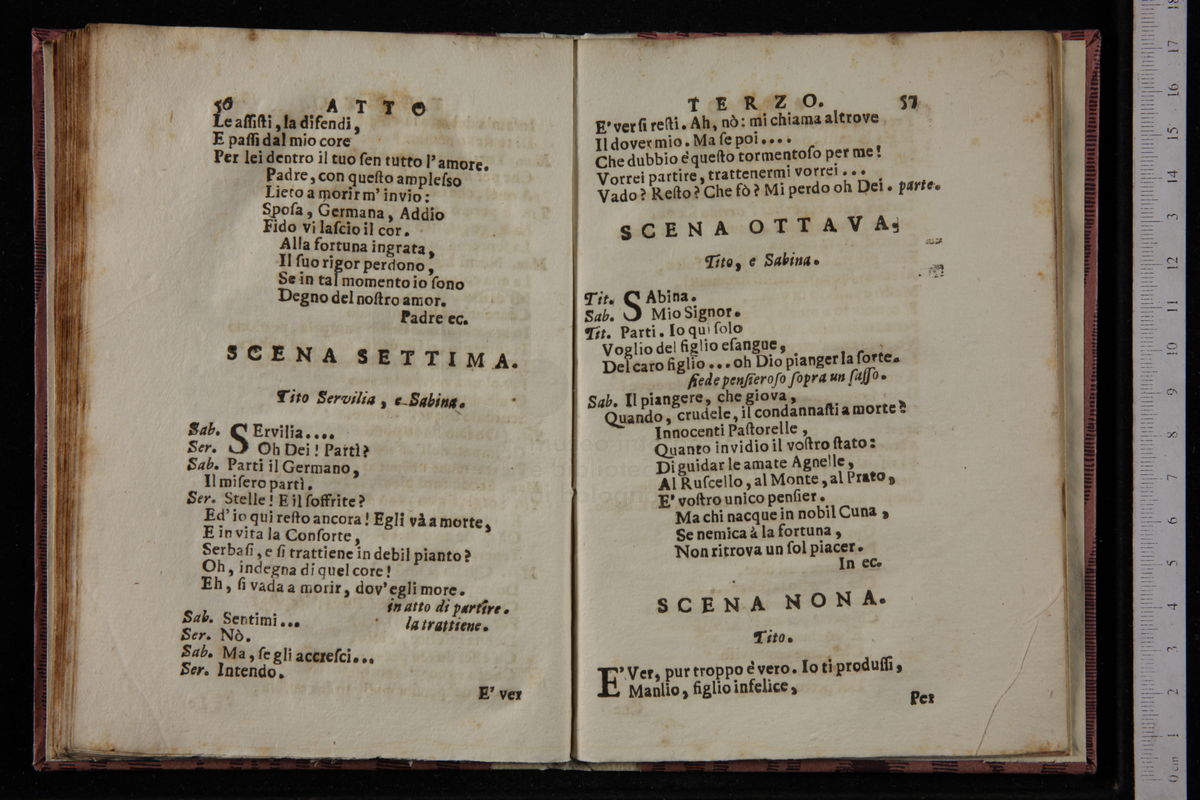 56 ATTO
Le assisti, la difendi,
E passi dal mio core
Per lei dentro il tuo sen tutto l'amore.
Padre, con questo amplesso
Lieto a morir m'invio:
Sposa, Germana, Addio
Fido vi lascio il cor.
Alla fortuna ingrata,
Il suo rigor perdono,
Se in tal momento io sono
Degno del nostro amor.
Padre ec.
SCENA SETTIMA.
Tito Servilia, e Sabina.
Sab. SErvilia....
Ser. Oh Dei! Partì?
Sab. Partì il Germano,
Il misero partì.
Ser. Stelle! E il soffrite?
Ed' io qui resto ancora! Egli và a morte,
E in vita la Consorte,
Serbasi, e si trattiene in debil pianto?
Oh, indegna di quel core!
Eh, si vada a morir, dov'egli more.
in atto di partire.
Sab. Sentimi... la trattiene.
Ser. Nò.
Sab. Ma, se gli accresci...
Ser. Intendo.
E' ver
TERZO. 57
E' ver si resti. Ah, nò: mi chiama altrove
Il dover mio. Ma se poi....
Che dubbio è questo tormentoso per me!
Vorrei partire, trattenermi vorrei...
Vado? Resto? Che fò? Mi perdo oh Dei. parte.
SCENA OTTAVA.
Tito, e Sabina.
Tit. SAbina.
Sab. Mio Signor.
Tit. Parti. Io qui solo
Voglio del figlio esangue,
Del caro figlio... oh Dio pianger la sorte.
siede pensieroso sopra un sasso.
Sab. Il piangere, che giova,
Quando, crudele, il condannasti a morte?
Innocenti Pastorelle,
Quanto invidio il vostro stato:
Di guidar le amate Agnelle,
Al Ruscello, al Monte, al Prato,
E' vostro unico pensier.
Ma chi nacque in nobil Cuna,
Se nemica à la fortuna,
Non ritrova un sol piacer.
In ec.
SCENA NONA.
Tito.
E' Ver, pur troppo è vero. Io ti produssi,
Manlio, figlio infelice,
Per